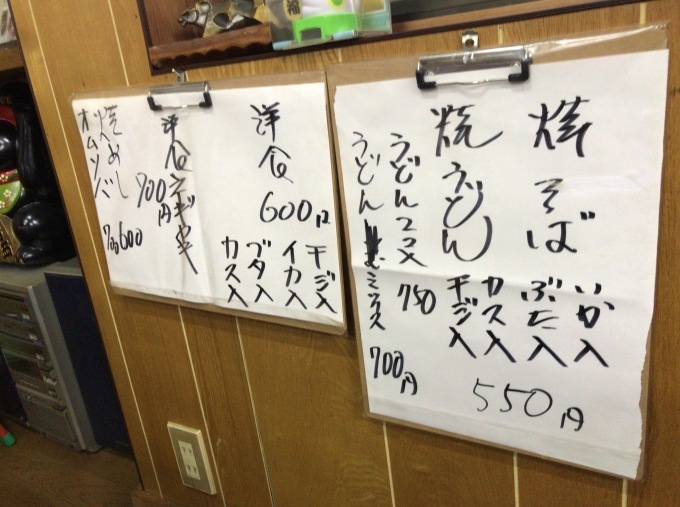 焼そば
いか入
ぶた入
焼うどん
カス入
550円
うどん
750
うどん
ミックス
700円
洋食
600円
イカ入
ブタ入
カス入
洋食
900円
焼めし
600
オムソバ
700